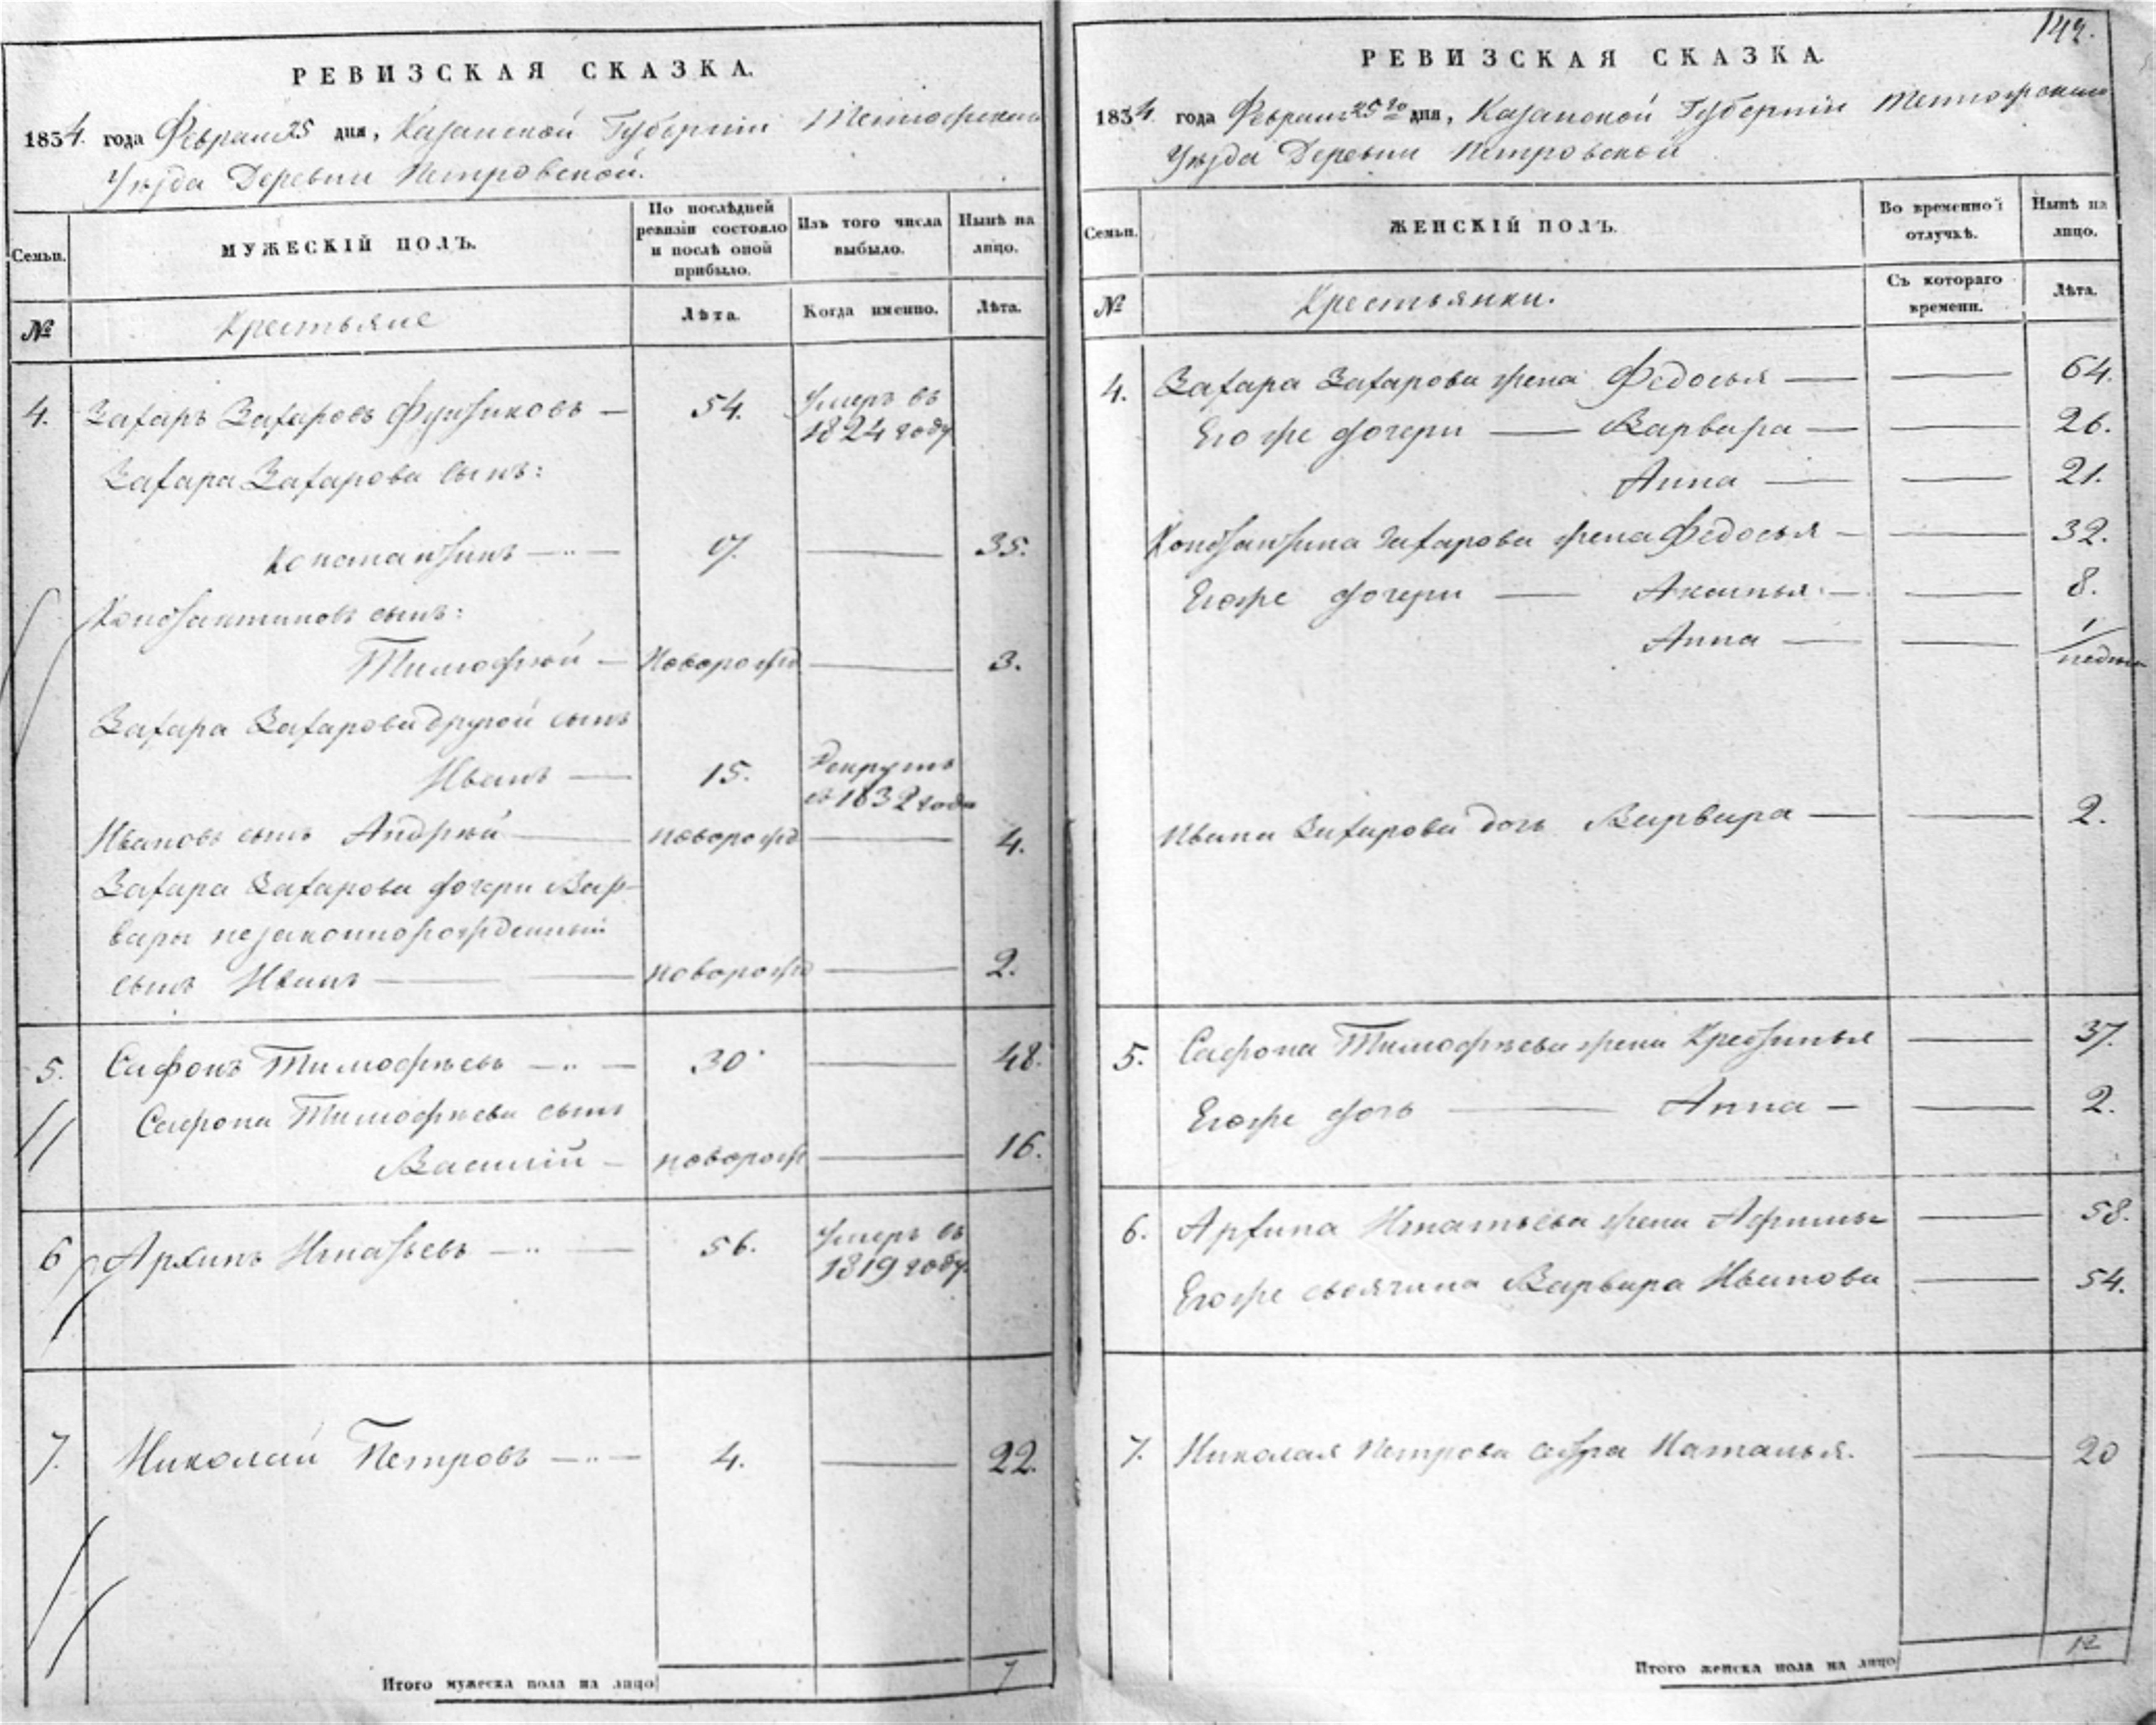 РЕВИЗСКАЯ СКАЗКА.
1834 года Февраля 25 дня, Казанской Губерніи Тетюшскаго
Уѣзда Деревни Петровской.
Семьи.
МУЖЕСКІЙ ПОЛЪ.
По послѣдней ревизіи состояло и послѣ оной прибыло.
Изъ того числа выбыло.
Нынѣ на лицо.
№
Крестьяне
Лѣта.
Когда именно.
Лѣта.
4. Захаръ Захаровъ — 54. Умеръ въ 1824 году
Захара Захарова сынъ:
Константинъ — 17. — 35.
Константиновъ сынъ:
Тимофей — Новорожд — 3.
Захара Захарова другой сынъ
Иванъ — 15. Рекрутъ съ 1832 года
Ивановъ сынъ Андрей — новорожд — 4.
Захара Захарова дочери Вар-
вары незаконнорожденный
сынъ Иванъ — новорожд — 2.
5. Сафонъ Тимофѣевъ — 30 — 48.
Сафона Тимофѣева сынъ
Василій — новорож — 16.
6 Архипъ Игнатьевъ — 56. Умеръ въ 1819 году.
7. Николай Петровъ — 4. — 22.
Итого мужеска пола на лицо 7
142.
РЕВИЗСКАЯ СКАЗКА.
1834 года Февраля 25го дня, Казанской Губерніи Тетюшскаго
Уѣзда Деревни Петровской
Семьи.
ЖЕНСКІЙ ПОЛЪ.
Во временной отлучкѣ.
Нынѣ на лицо.
№
Крестьянки.
Съ котораго времени.
Лѣта.
4. Захара Захарова жена Федосья — — 64.
Его же дочери — Варвара — — 26.
Анна — — 21.
Константина Захарова жена Федосья — — 32.
Его же дочери — — — 8.
Анна — — 1/недѣли
Ивана Захарова дочь Варвара — — 2.
5. Сафона Тимофѣева жена — 37.
Его же дочь — Анна — — 2.
6. Архипа Игнатьева жена — 58.
Его же своячина Варвара Иванова — 54.
7. Николая Петрова сестра Наталья. — 20
Итого женска пола на лицо 12